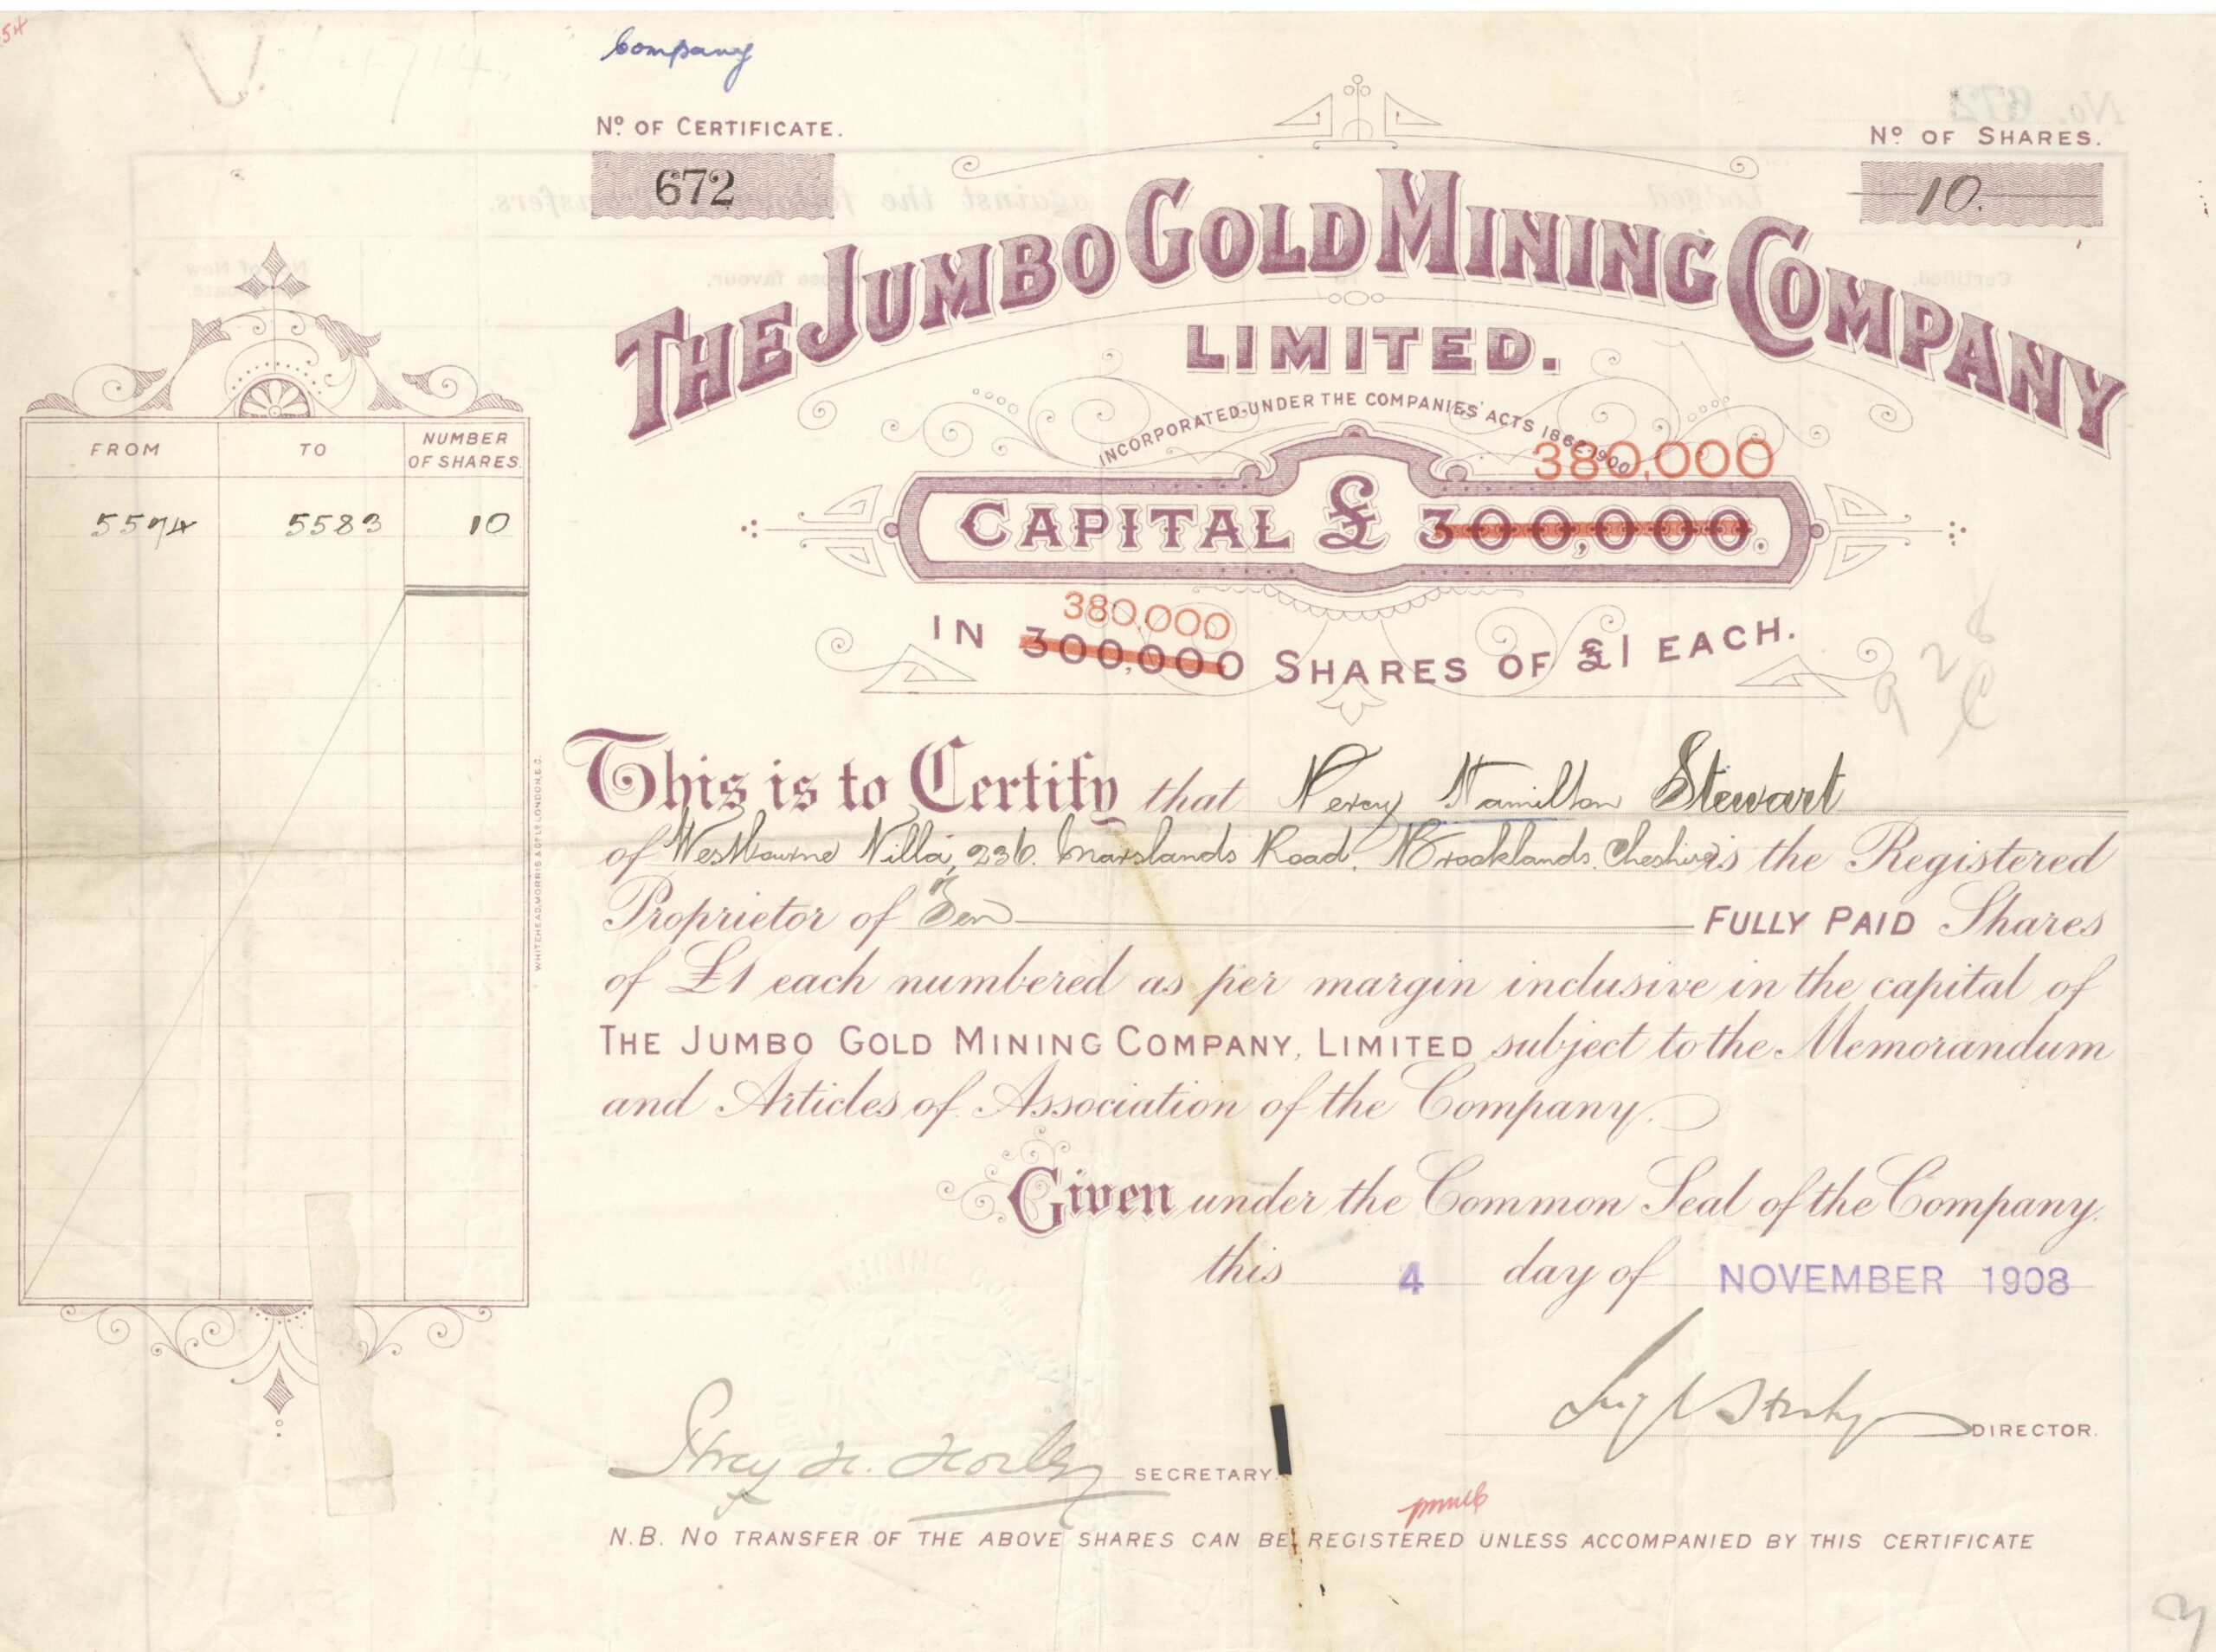 54
Company
Nº OF CERTIFICATE.
672
Nº OF SHARES.
10.
THE JUMBO GOLD MINING COMPANY
LIMITED.
INCORPORATED UNDER THE COMPANIES' ACTS 1862-1900
380,000
CAPITAL £ 300,000.
380,000
IN 300,000 SHARES OF £1 EACH.
FROM TO NUMBER OF SHARES.
5574 5583 10
This is to Certify that Percy Hamilton Stewart
of Westbourne Villa, 236. Marslands Road. Brooklands. Cheshire is the Registered
Proprietor of Ten FULLY PAID Shares
of £1 each numbered as per margin inclusive in the capital of
THE JUMBO GOLD MINING COMPANY, LIMITED subject to the Memorandum
and Articles of Association of the Company.
Given under the Common Seal of the Company.
this 4 day of NOVEMBER 1908
DIRECTOR.
SECRETARY.
N.B. NO TRANSFER OF THE ABOVE SHARES CAN BE REGISTERED UNLESS ACCOMPANIED BY THIS CERTIFICATE
WHITEHEAD, MORRIS & Cº Lº LONDON, E.C.